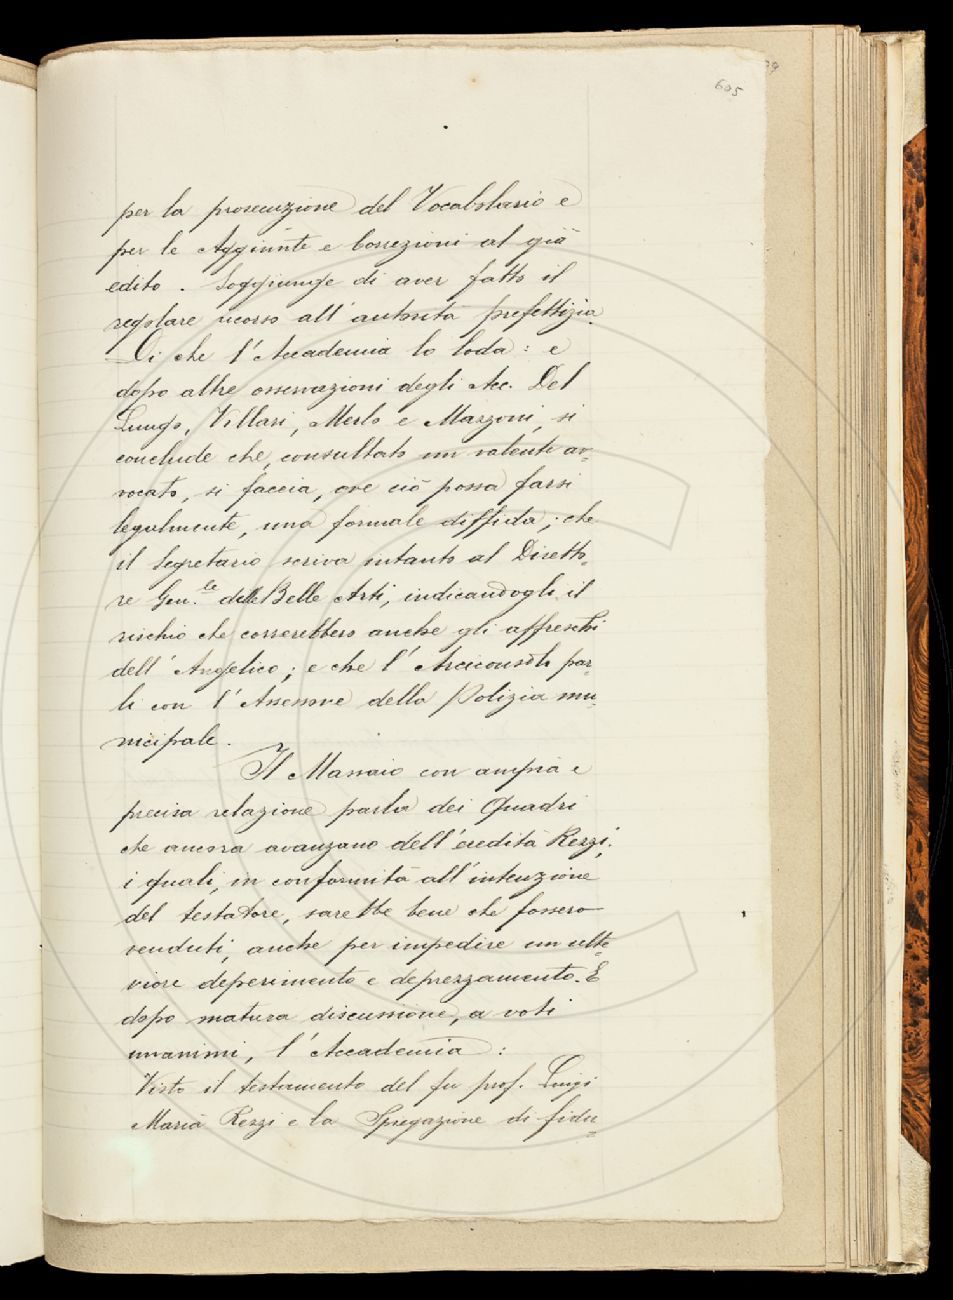 605
per la prosecuzione del Vocabolario e
per le Aggiunte e Correzioni al già
edito. Soggiunge di aver fatto il
regolare ricorso all'autorità prefettizia.
Di che l'Accademia lo loda: e
dopo altre osservazioni degli Acc. Del
Lungo, Villari, Merlo e Mazzoni, si
conclude che, consultato un valente av=
vocato, si faccia, ove ciò possa farsi
legalmente, una formale diffida; che
il Segretario scriva intanto al Diretto=
re Gen.le delle Belle Arti, indicandogli il
rischio che correrebbero anche gli affreschi
dell'Angelico; e che l'Arciconsolo par=
li con l'Assessore della Polizia mu=
nicipale.
Il Massaio con ampia e
precisa relazione parla dei Quadri
che ancora avanzano dell'eredità Rezzi;
i quali, in conformità all'intenzione
del testatore, sarebbe bene che fossero
venduti, anche per impedire un ulte=
riore deperimento e deprezzamento. E
dopo matura discussione, a voti
unanimi, l'Accademia:
Visto il testamento del fu prof. Luigi
Maria Rezzi e la Spiegazione di fidu=